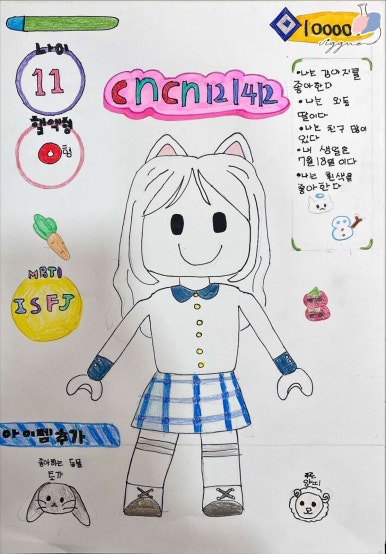 10000
나이
11
cncn121412
혈액형
O형
•나는 강아지를
좋아한다
•나는 외동
딸이다
•나는 친구 많이
있다
•내 생일은
7월18일 이다
•나는 흰색을
좋아한다
MBTI
ISFJ
아이템추가
좋아하는 동물
토끼
양띠